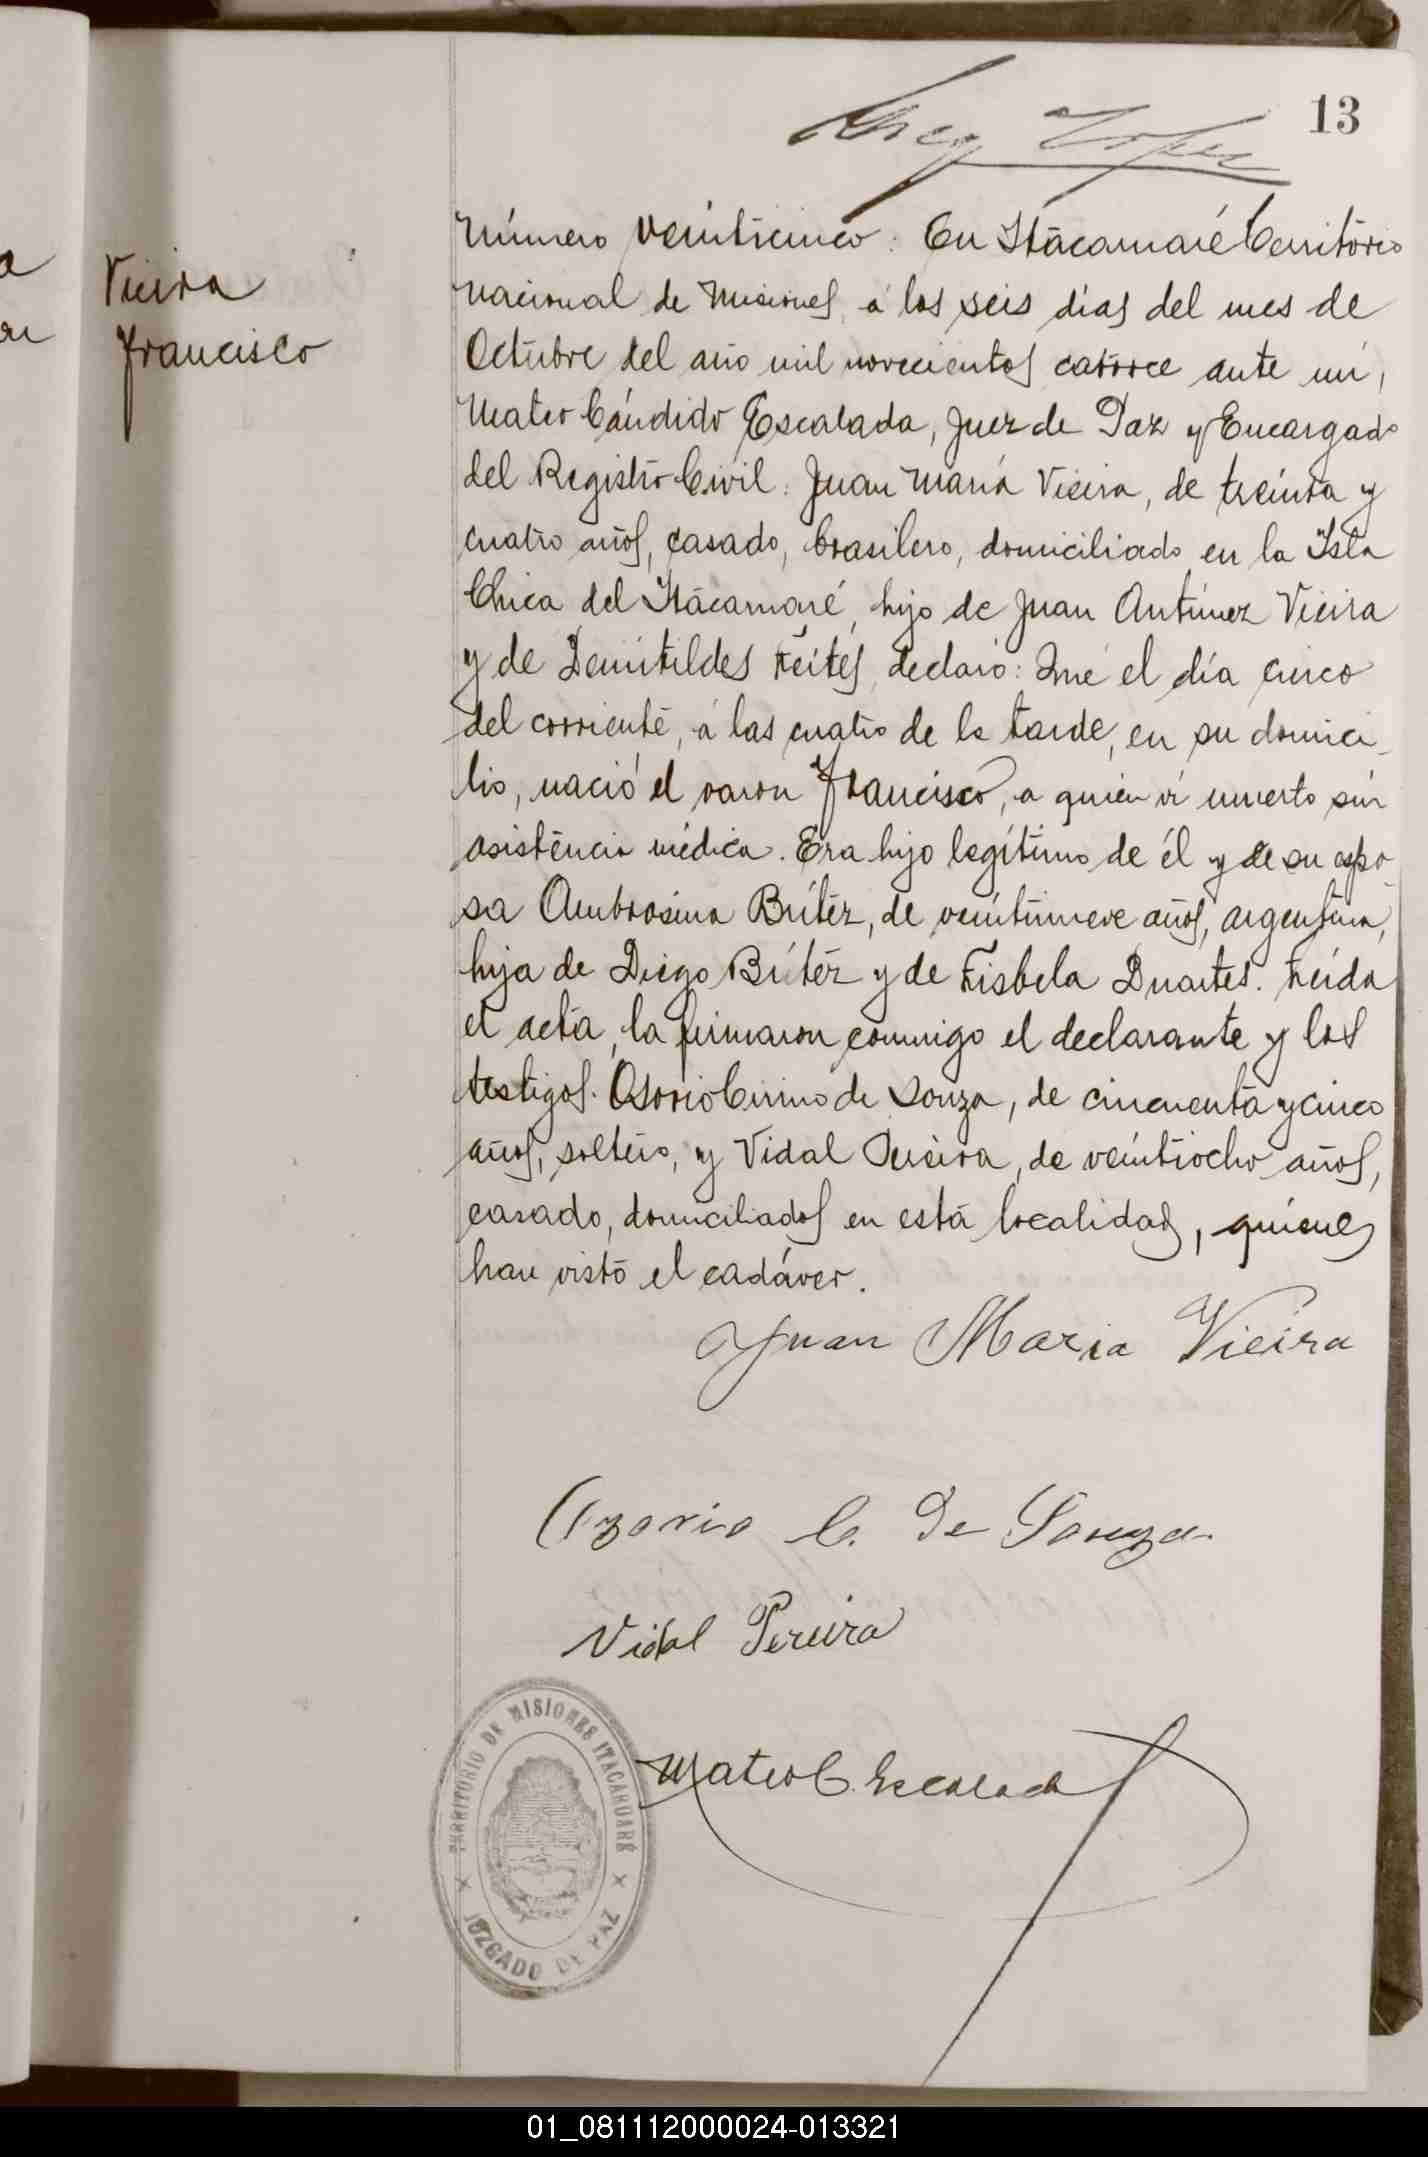 13
Greg Lopez
Vieira
Francisco
Número veinticinco: En Itacaruaré Territorio
nacional de Misiones, á los seis días del mes de
Octubre del año mil novecientos catorce ante mí,
Mateo Cándido Escalada, Juez de Paz y Encargado
del Registro Civil: Juan María Vieira, de treinta y
cuatro años, casado, brasilero, domiciliado en la Isla
Chica del Itacaruaré, hijo de Juan Antúnez Vieira
y de Demitildes Feites, declaró: Qué el día cinco
del corriente, á las cuatro de la tarde, en su domici-
lio, nació el varon Francisco, a quien ví muerto sin
asistencia médica. Era hijo legítimo de él y de su espo-
sa Ambrosina Brítez, de veintinueve años, argentina,
hija de Diego Brítez y de Fisbela Duartes. Leída
el acta, la firmaron conmigo el declarante y los
testigos. Osorio Cirino de Souza, de cincuenta y cinco
años, soltero, y Vidal Pereira, de veintiocho años,
casado, domiciliados en está localidad, quienes
han visto el cadáver.
Juan Maria Vieira
Ozorio C. De Souza
Vidal Pereira
Mateo C. Escalada
TERRITORIO DE MISIONES ITACARUARÉ
JUZGADO DE PAZ
01_081112000024-013321